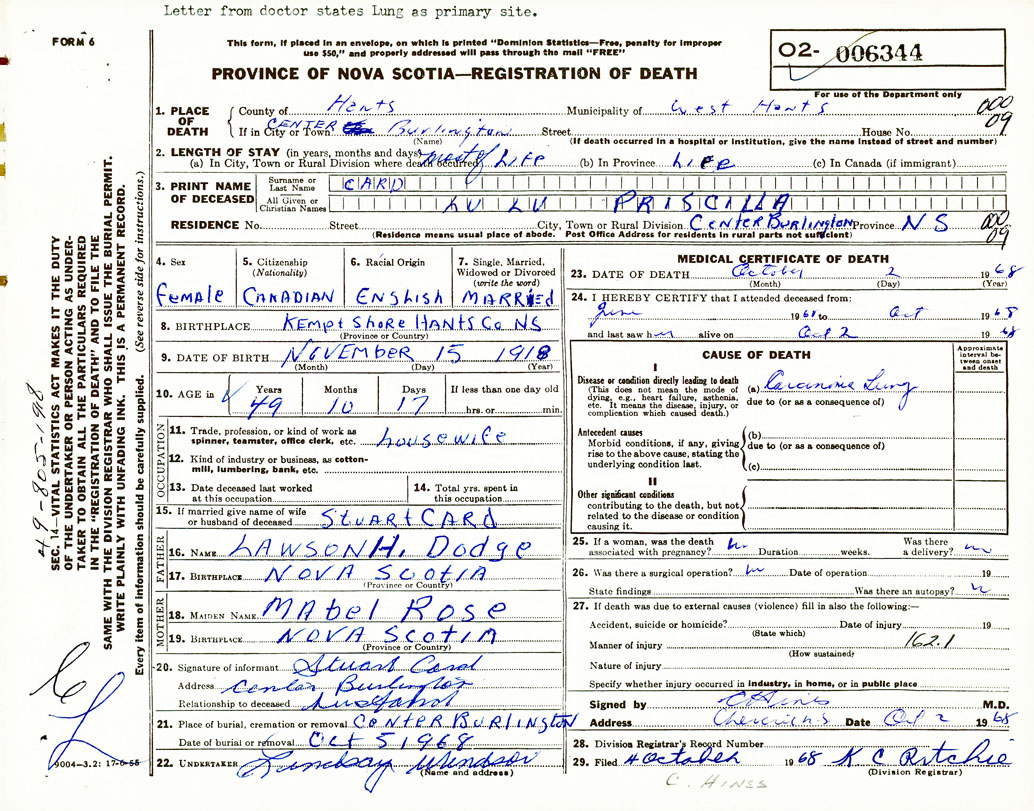 Letter from doctor states Lung as primary site.
FORM 6
This form, if placed in an envelope, on which is printed "Dominion Statistics—Free, penalty for improper
use $50," and properly addressed will pass through the mail "FREE"
O2- 006344
PROVINCE OF NOVA SCOTIA—REGISTRATION OF DEATH
For use of the Department only
1. PLACE OF DEATH County of Hants Municipality of West Hants 000
If in City or Town CENTER Burlington Street House No. 09
(Name) (If death occurred in a hospital or institution, give the name instead of street and number)
2. LENGTH OF STAY (in years, months and days)
(a) In City, Town or Rural Division where death occurred most of LIFE (b) In Province LIFE (c) In Canada (if immigrant)
3. PRINT NAME OF DECEASED Surname or Last Name CARD
All Given or Christian Names LU LU PRISCILLA
RESIDENCE No. Street City, Town or Rural Division CENTER BURLINGTON Province N S 000 09
(Residence means usual place of abode. Post Office Address for residents in rural parts not sufficient)
4. Sex Female
5. Citizenship (Nationality) CANADIAN
6. Racial Origin ENGLISH
7. Single, Married, Widowed or Divorced (write the word) MARRIED
8. BIRTHPLACE KEMPT SHORE HANTS Co NS
(Province or Country)
9. DATE OF BIRTH NOVEMBER 15 1918
(Month) (Day) (Year)
10. AGE in Years 49 Months 10 Days 17 If less than one day old hrs. or min.
OCCUPATION
11. Trade, profession, or kind of work as spinner, teamster, office clerk, etc. housewife
12. Kind of industry or business, as cotton-mill, lumbering, bank, etc.
13. Date deceased last worked at this occupation
14. Total yrs. spent in this occupation
15. If married give name of wife or husband of deceased STUART CARD
FATHER
16. NAME LAWSON H. Dodge
17. BIRTHPLACE NOVA SCOTIA
(Province or Country)
MOTHER
18. MAIDEN NAME MABEL ROSE
19. BIRTHPLACE NOVA SCOTIA
(Province or Country)
20. Signature of informant Stuart Card
Address Center Burlington
Relationship to deceased husband
21. Place of burial, cremation or removal CENTER BURLINGTON
Date of burial or removal Oct 5 1968
22. UNDERTAKER Lindsay Windsor
(Name and address)
MEDICAL CERTIFICATE OF DEATH
23. DATE OF DEATH October 2 1968
(Month) (Day) (Year)
24. I HEREBY CERTIFY that I attended deceased from:
June 1968 to Oct 1968
and last saw her alive on Oct 2 1968
CAUSE OF DEATH
Approximate interval between onset and death
I
Disease or condition directly leading to death
(This does not mean the mode of dying, e.g., heart failure, asthenia, etc. It means the disease, injury, or complication which caused death.)
(a) Carcinoma Lung
due to (or as a consequence of)
Antecedent causes
Morbid conditions, if any, giving rise to the above cause, stating the underlying condition last.
(b)
due to (or as a consequence of)
(c)
II
Other significant conditions
contributing to the death, but not related to the disease or condition causing it.
25. If a woman, was the death associated with pregnancy? no Duration weeks. Was there a delivery? no
26. Was there a surgical operation? no Date of operation 19
State findings Was there an autopsy? n
27. If death was due to external causes (violence) fill in also the following:—
Accident, suicide or homicide? Date of injury 19
(State which)
Manner of injury 162.1
(How sustained)
Nature of injury
Specify whether injury occurred in industry, in home, or in public place
Signed by C Hines M.D.
Address Date Oct 2 1968
28. Division Registrar's Record Number
29. Filed 4 October 1968 K C Ritchie
(Division Registrar)
C. HINES
49-805-198
SEC. 14—VITAL STATISTICS ACT MAKES IT THE DUTY
OF THE UNDERTAKER OR PERSON ACTING AS UNDER-
TAKER TO OBTAIN ALL THE PARTICULARS REQUIRED
IN THE "REGISTRATION OF DEATH" AND TO FILE THE
SAME WITH THE DIVISION REGISTRAR WHO SHALL ISSUE THE BURIAL PERMIT.
WRITE PLAINLY WITH UNFADING INK. THIS IS A PERMANENT RECORD.
Every item of information should be carefully supplied. (See reverse side for instructions.)
9004-3.2: 17-6-55